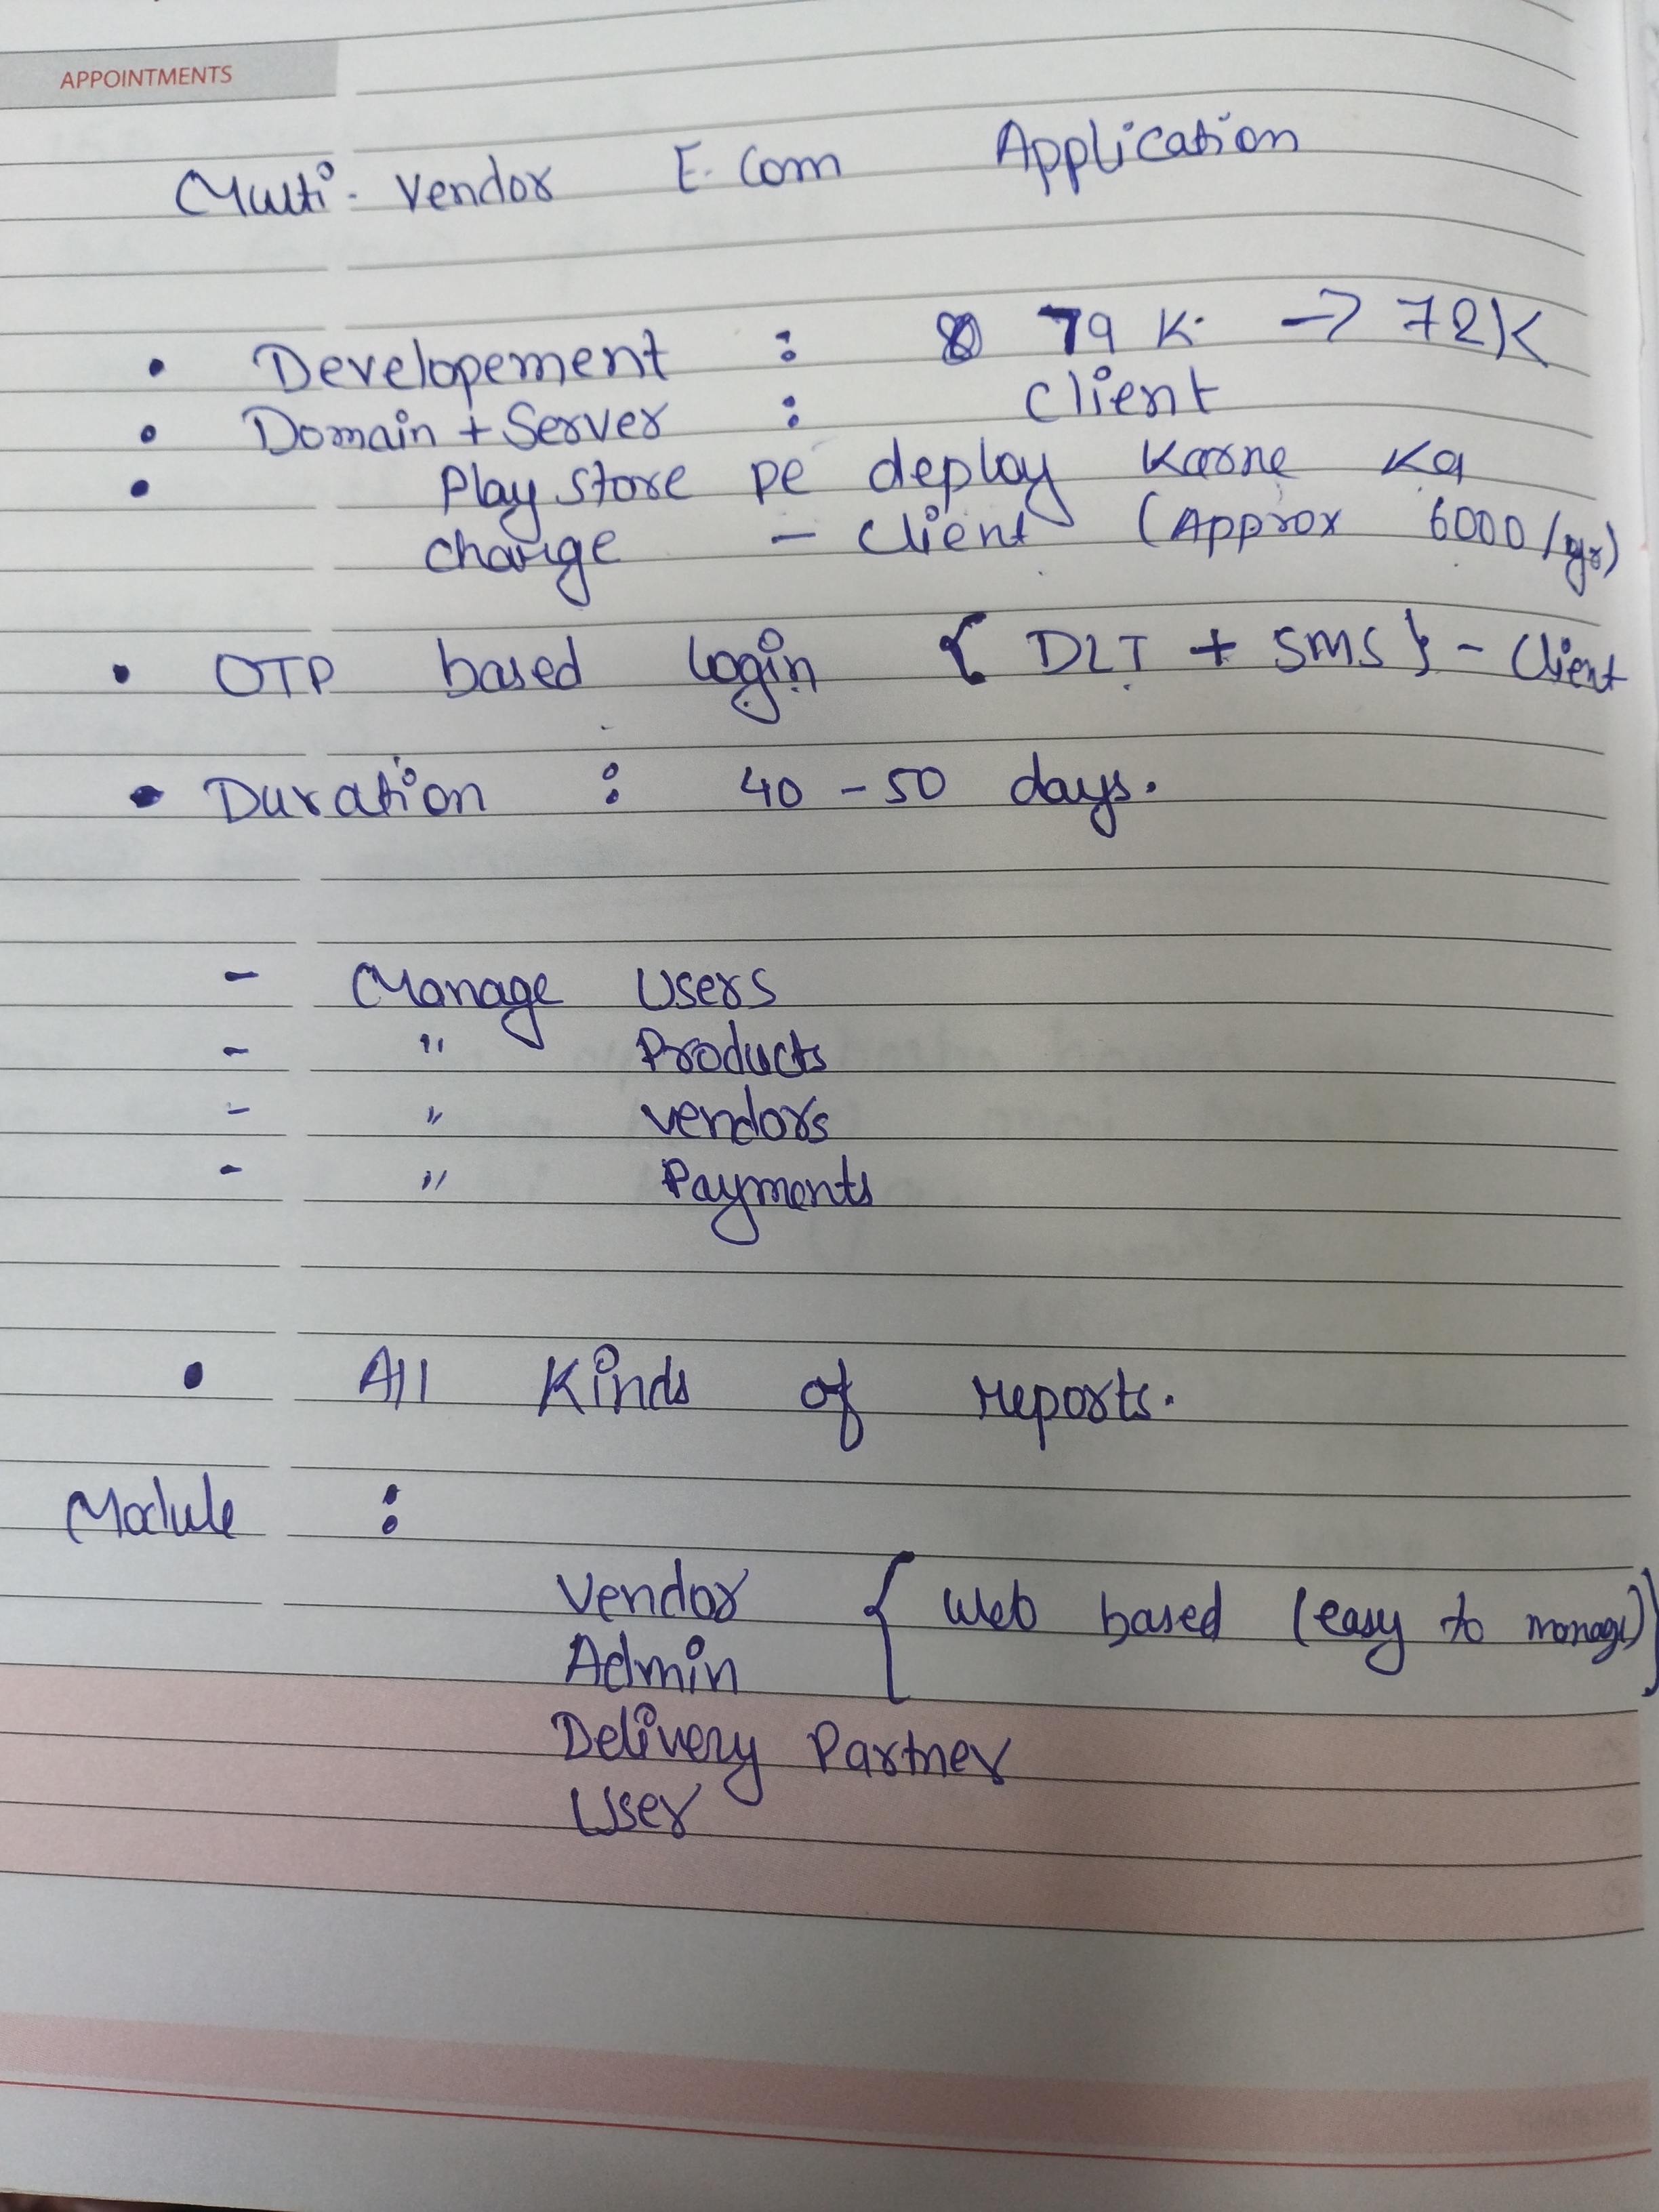 APPOINTMENTS
Multi- Vendor E. Com Application
• Developement : 79 K. → 72K
• Domain + Server : Client
• Play Store pe deploy Karne Ka
charge - Client (Approx 6000/yr)
• OTP based login { DLT + SMS } - Client
• Duration : 40 - 50 days.
- Manage Users
- " Products
- " vendors
- " Payments
• All Kinds of reports.
Module :
Vendor { Web based (easy to manage) }
Admin
Delivery Partner
User